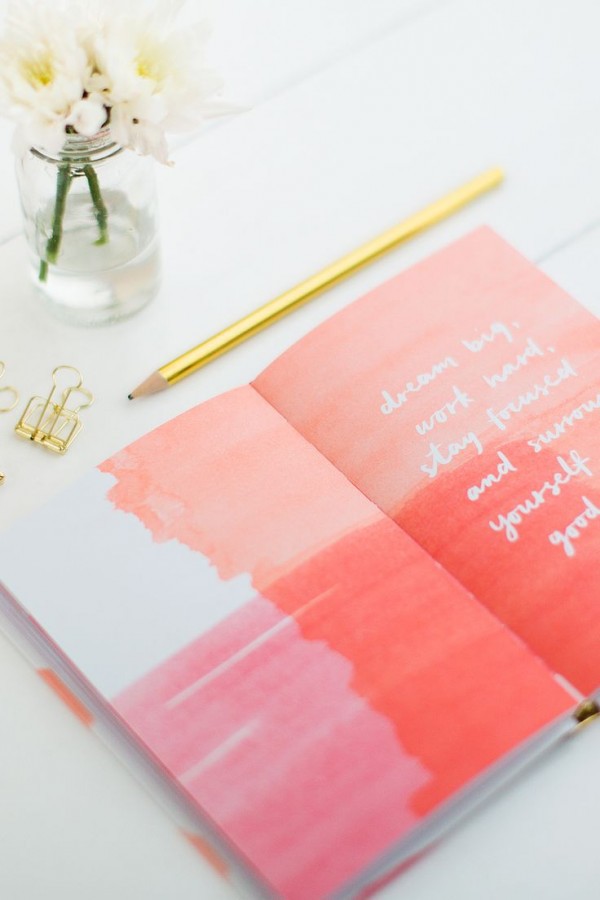 dream big,
work hard,
stay focused
and surrou
yourself
good